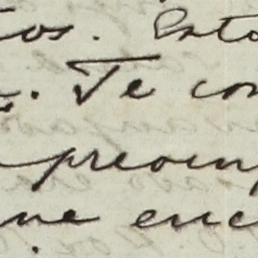 tos. Esto
. Te con
preocup
me enc